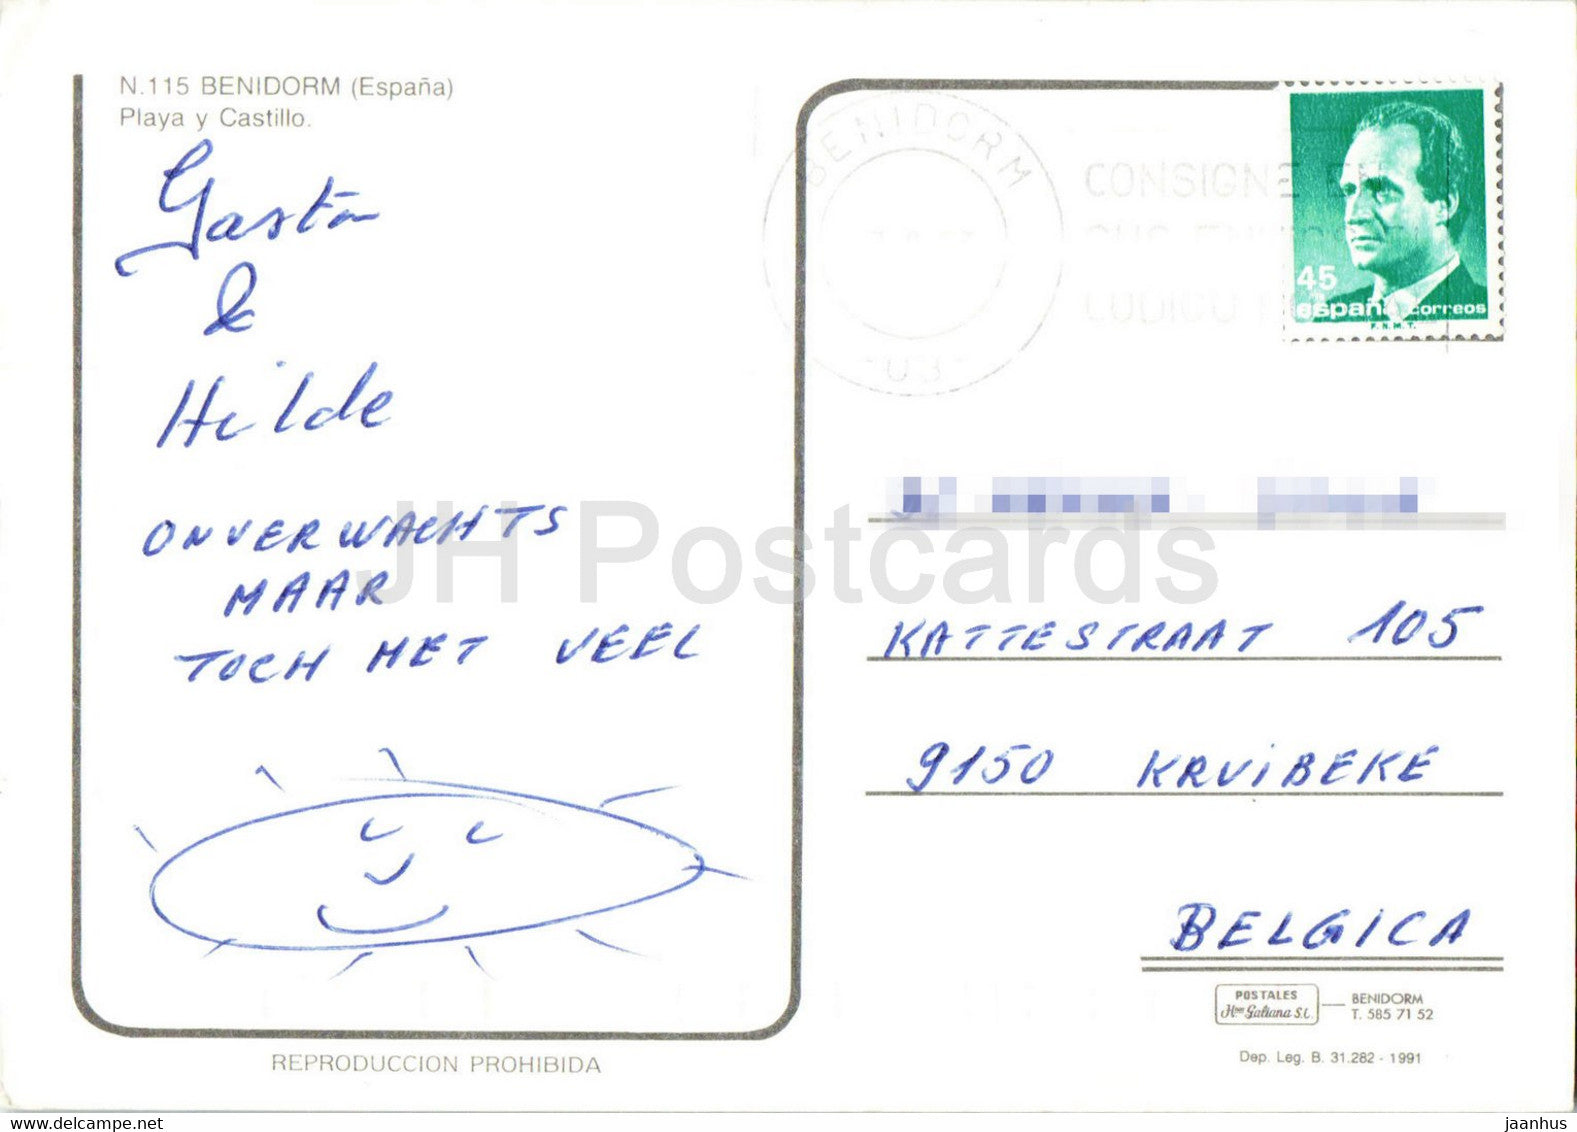 N.115 BENIDORM (España)
Playa y Castillo.
Gaston
&
Hilde
ONVERWACHTS
MAAR
TOCH MET VEEL
REPRODUCCION PROHIBIDA
BENIDORM
03
CONSIGNE EN
45
españa correos
F.N.M.T.
KATTESTRAAT 105
9150 KRUIBEKE
BELGICA
POSTALES
Hnos Galiana S.L.
BENIDORM
T. 585 71 52
Dep. Leg. B. 31.282 - 1991
JH Postcards
www.delcampe.net
jaanhus